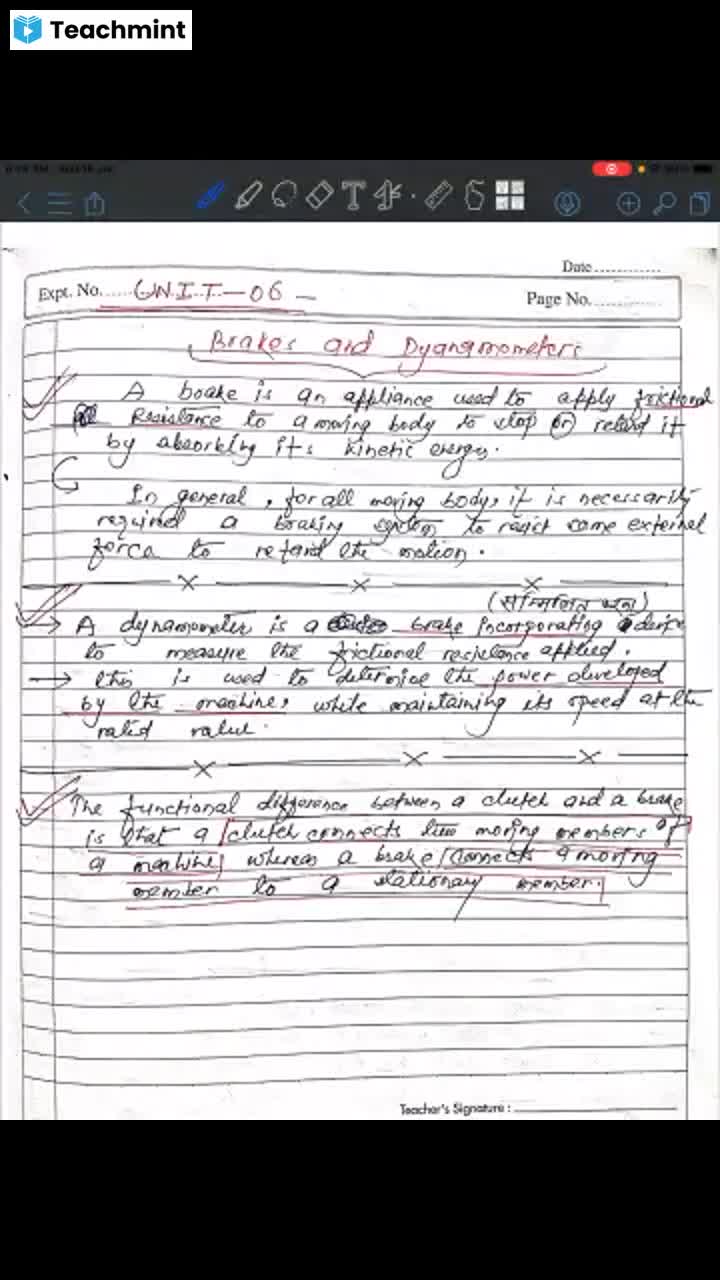 Teachmint
Date
Expt. No. UNIT-06
Page No.
Brakes and Dyanamometers
A brake is an appliance used to apply frictional
Resistance to a moving body to stop or retard it
by absorbing its kinetic energy.
In general, for all moving body, it is necessarily
required a braking system to resist some external
force to retard the motion.
A dynamometer is a brake incorporating
to measure the frictional resistance applied.
→ this is used to determine the power developed
by the machine, while maintaining its speed at the
rated value.
The functional difference between a clutch and a brake
is that a clutch connects two moving members of
a machine whereas a brake connects a moving
member to a stationary member.
Teacher's Signature :